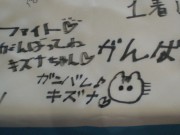 ファイト♡
がんばってね
キズナちゃん♡
がんば
ガンバレ♪
キズナ
1着